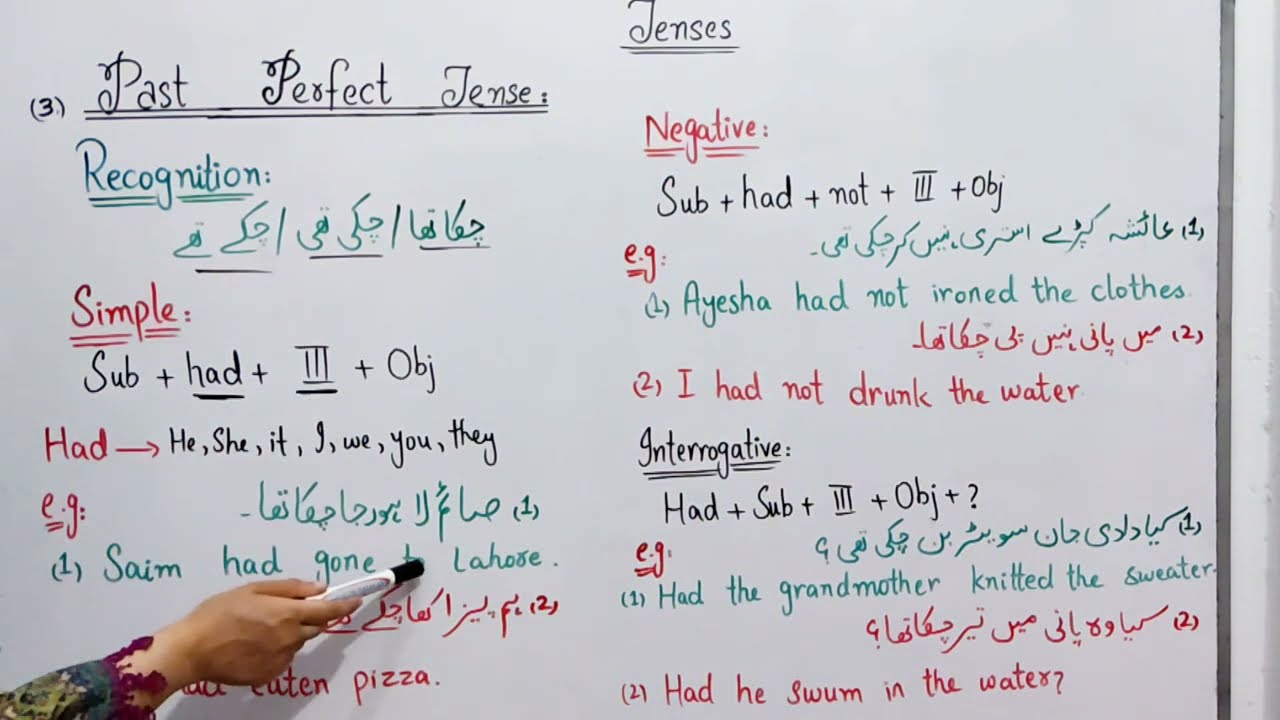 Tenses
(3.) Past Perfect Tense:
Recognition:
چکا تھا / چکی تھی / چکے تھے
Simple:
Sub + had + III + Obj
Had → He, She, it, I, we, you, they
e.g:
(1) صائم لاہور جا چکا تھا۔
(1) Saim had gone Lahore.
(2) ہم پیزا کھا چکے
eaten pizza.
Negative:
Sub + had + not + III + Obj
(1) عائشہ کپڑے استری نہیں کر چکی تھی۔
e.g:
(1) Ayesha had not ironed the clothes.
(2) میں پانی نہیں پی چکا تھا۔
(2) I had not drunk the water.
Interrogative:
Had + Sub + III + Obj + ?
(1) کیا دادی جان سویٹر بن چکی تھی؟
e.g:
(1) Had the grandmother knitted the sweater.
(2) کیا وہ پانی میں تیر چکا تھا؟
(2) Had he swum in the water?